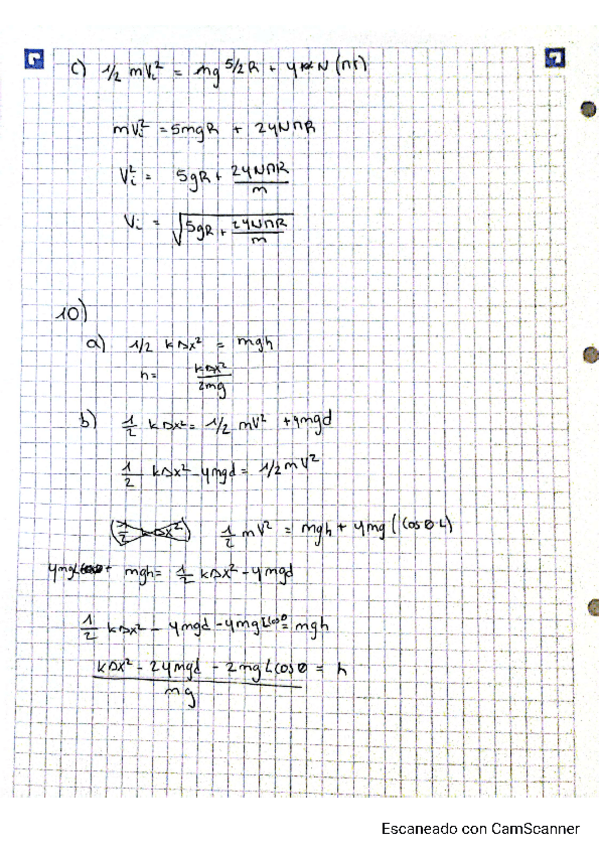 c) 1/2 m Vi² = mg 5/2 R + μ N (πr)
m Vi² = 5mgR + 2μNπR
Vi² = 5gR + 2μNπR / m
Vi = √(5gR + 2μNπR / m)
10)
a) 1/2 kΔx² = mgh
h = kΔx² / 2mg
b) 1/2 kΔx² = 1/2 mV² + μmgd
1/2 kΔx² - μmgd = 1/2 mV²
1/2 mV² = mgh + μmg (cosθ·L)
mgh = 1/2 kΔx² - μmgd
1/2 kΔx² - μmgd - μmgLcosθ = mgh
kΔx² - 2μmgd - 2mgLcosθ / mg = h
Escaneado con CamScanner